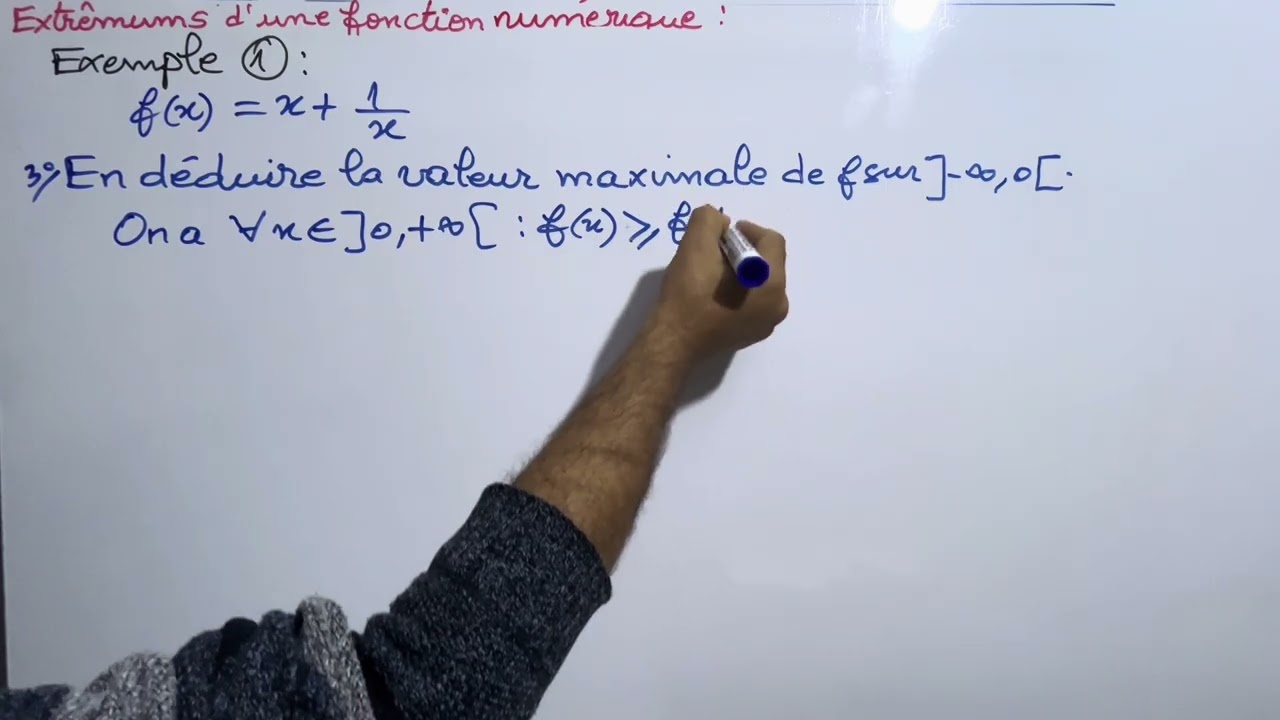 Extrêmums d'une fonction numérique :
Exemple ① :
f(x) = x + 1/x
3°/ En déduire la valeur maximale de f sur ]-∞,0[.
On a ∀x∈]0,+∞[ : f(x) ⩾ f(